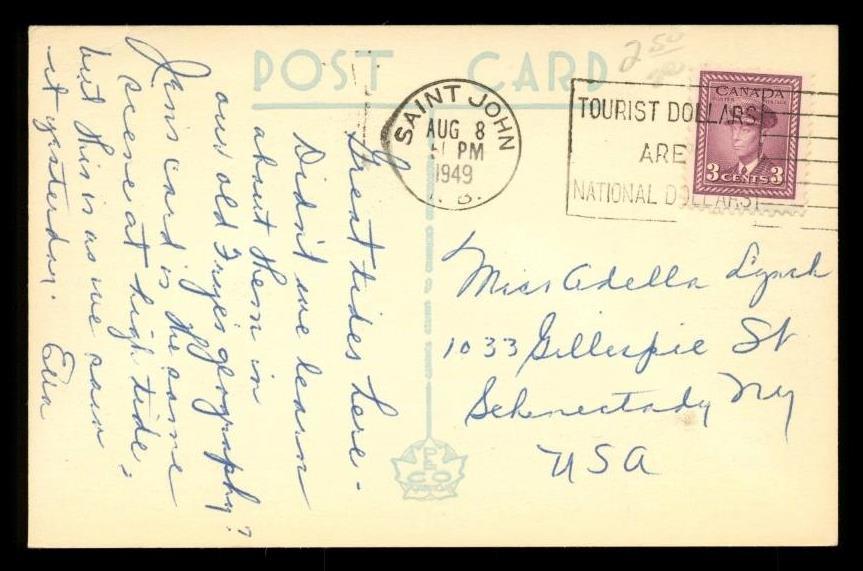 POST CARD
2 50
SAINT JOHN
AUG 8
11 PM
1949
N. B.
TOURIST DOLLARS
ARE
NATIONAL DOLLARS!
CANADA
POSTES POSTAGE
3 CENTS 3
Great tides here.
Didn't we learn
about them in
our old Frye's geography?
Jen's card is the same
scene at high tide,
but this is as we saw
it yesterday. Ella
Miss Adella Lynch
1033 Gillespie St
Schenectady NY
USA
PECO